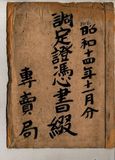 昭和十四年十一月分
調定證憑書綴
專賣局